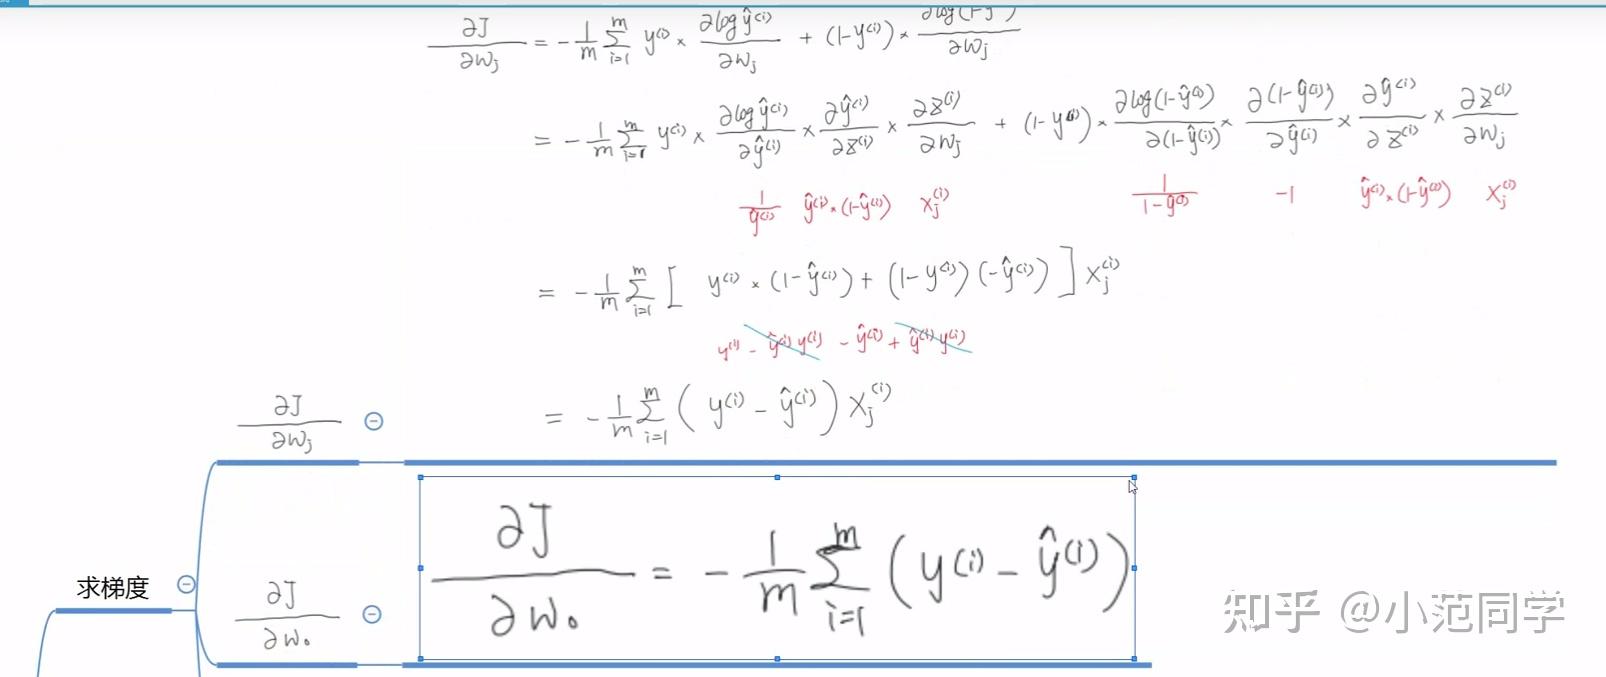 ∂J/∂wⱼ = -1/m Σᵢ₌₁ᵐ y⁽ⁱ⁾ × ∂log ŷ⁽ⁱ⁾/∂wⱼ + (1-y⁽ⁱ⁾) × ∂log(1-ŷ⁽ⁱ⁾)/∂wⱼ
= -1/m Σᵢ₌₁ᵐ y⁽ⁱ⁾ × ∂log ŷ⁽ⁱ⁾/∂ŷ⁽ⁱ⁾ × ∂ŷ⁽ⁱ⁾/∂z⁽ⁱ⁾ × ∂z⁽ⁱ⁾/∂wⱼ + (1-y⁽ⁱ⁾) × ∂log(1-ŷ⁽ⁱ⁾)/∂(1-ŷ⁽ⁱ⁾) × ∂(1-ŷ⁽ⁱ⁾)/∂ŷ⁽ⁱ⁾ × ∂ŷ⁽ⁱ⁾/∂z⁽ⁱ⁾ × ∂z⁽ⁱ⁾/∂wⱼ
1/ŷ⁽ⁱ⁾ ŷ⁽ⁱ⁾×(1-ŷ⁽ⁱ⁾) xⱼ⁽ⁱ⁾ 1/(1-ŷ⁽ⁱ⁾) -1 ŷ⁽ⁱ⁾×(1-ŷ⁽ⁱ⁾) xⱼ⁽ⁱ⁾
= -1/m Σᵢ₌₁ᵐ [ y⁽ⁱ⁾ × (1-ŷ⁽ⁱ⁾) + (1-y⁽ⁱ⁾)(-ŷ⁽ⁱ⁾) ] xⱼ⁽ⁱ⁾
y⁽ⁱ⁾ - ŷ⁽ⁱ⁾y⁽ⁱ⁾ - ŷ⁽ⁱ⁾ + ŷ⁽ⁱ⁾y⁽ⁱ⁾
∂J/∂wⱼ
= -1/m Σᵢ₌₁ᵐ (y⁽ⁱ⁾ - ŷ⁽ⁱ⁾) xⱼ⁽ⁱ⁾
求梯度
∂J/∂w₀
∂J/∂w₀ = -1/m Σᵢ₌₁ᵐ (y⁽ⁱ⁾ - ŷ⁽ⁱ⁾)
知乎 @小范同学